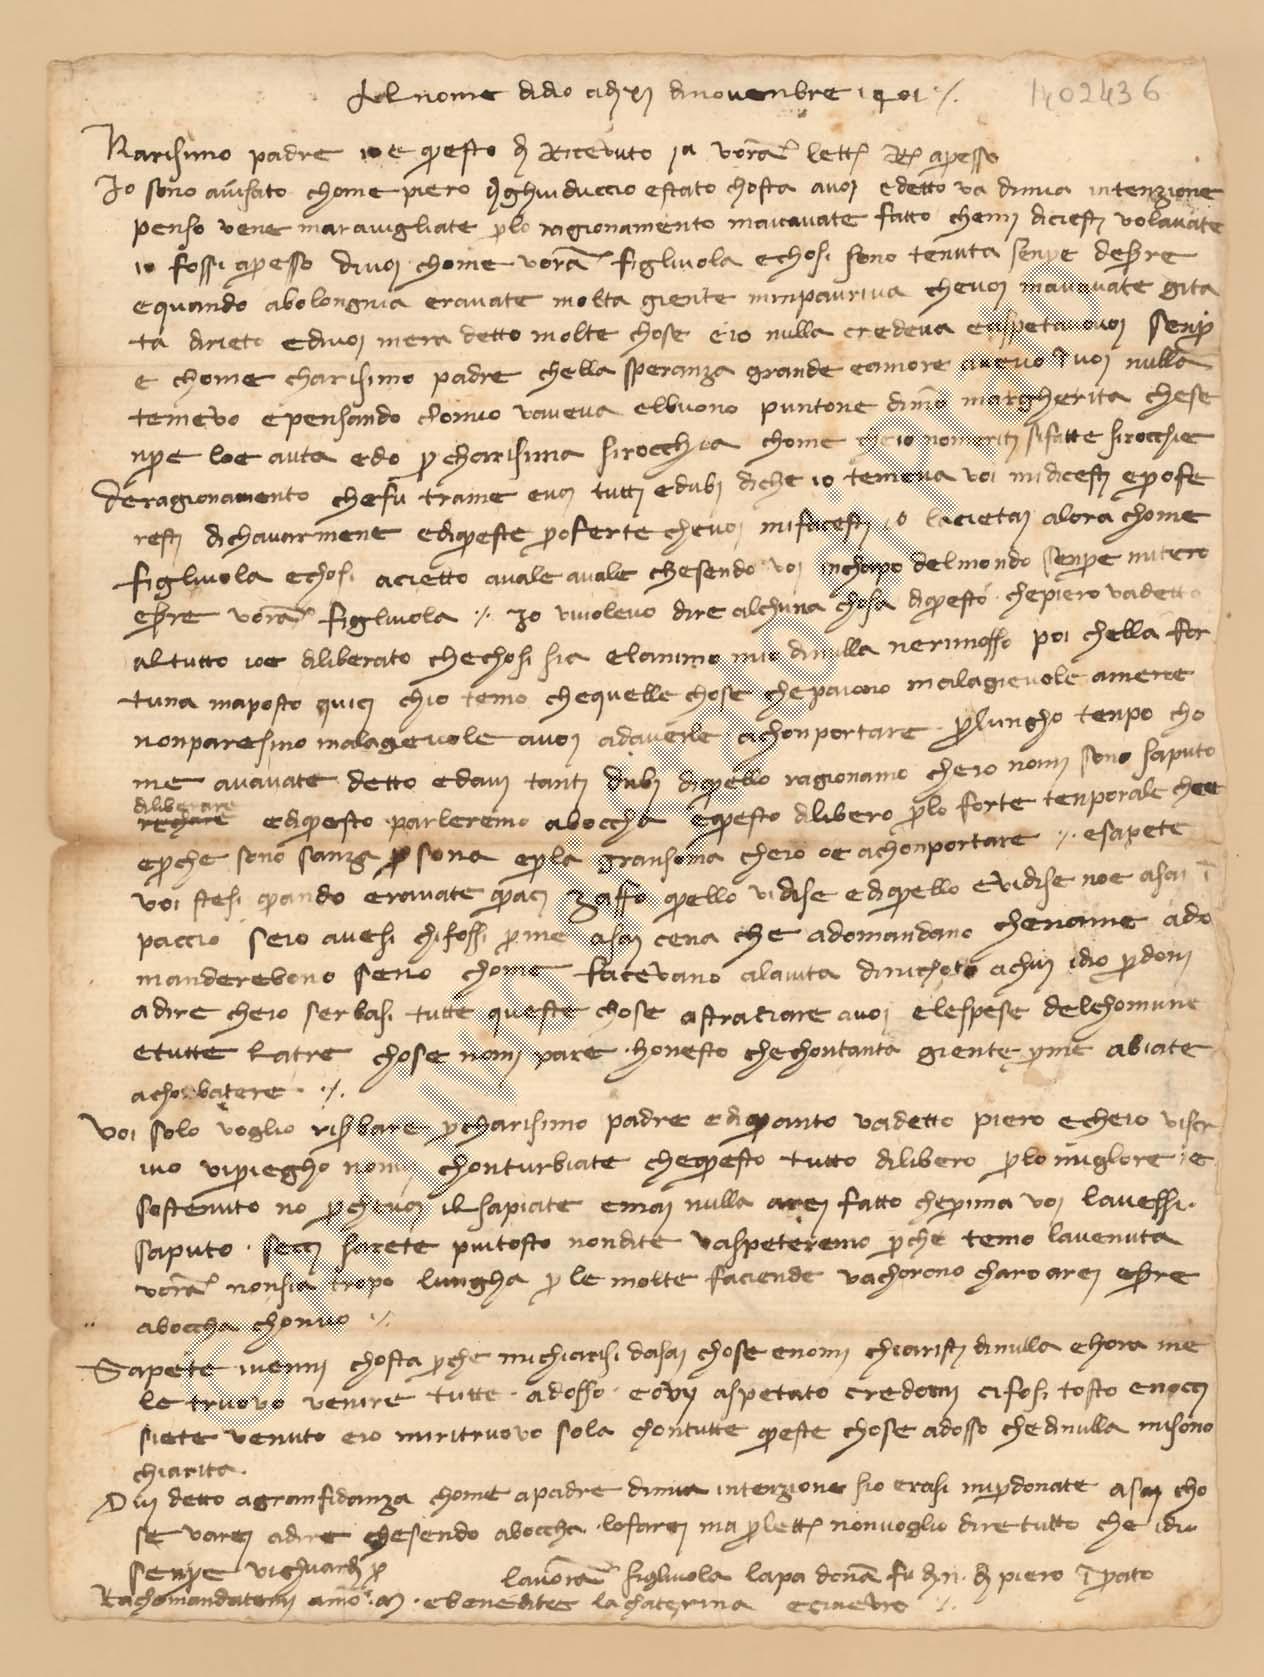 Al nome di dio adi XI di novembre 1401 ·/·
1402436
Karisimo padre io e questo di Ricevuto 1a vostra lettera Rispondo apresso
Io sono avisato chome piero di ghuiduccio estato chosta avoi e detto va di mia intenzione
penso vene maravigliate per lo ragionamento maicavate fatto chemi dicieste volavate
io fossi apresso di voi chome vostra figliuola e chosi sono tenuta senpre desere
e quando abolongnia eravate molta giente mimpauriva che voi mavavate gita
ta dirieto e di voi mera detto molte chose e io nulla credeva e aspetavovi senpr
e chome charisimo padre chella speranza grande e amore avevo i voi nulla
temevo e pensando chonvo vaveva el buono puntone di mona margherita chese
npre loe auta e do per charisima sirocchia chome che io nomeriti sifatte sirocchie
De ragionamento che fu trame e voi tutti e dubi di che io temeva voi mi dicesti e profe
resti di chavarmene e di queste proferte che voi mi facesti io laciettai alora chome
figliuola e chosi acietto avale avale chesendo voi in chapo del mondo senpre mi tero
esere vostra figliuola ·/· Io vi volevo dire alchuna chosa di questo che piero va detto
al tutto io e diliberato che chosi sia e lanimo mio di nulla ne rimosso poi chella for
tuna maposto quici chio temo che quelle chose che paiono malagievole a mere
non paresino malagievole a voi adavelle achonportare per lungho tenpo cho
me avavate detto e davi tanti dubi di quello ragionamo che io nomi sono saputo
diliberare
regiare e di questo parleremo aboccha e questo dilibero per lo forte tenporale chee
e perche sono sanza persona e per la gran soma che io oe achonportare ·/· e sapete
voi stesi quando eravate quaci zaffo quello vi dise e di quello e vi dise noe asai i
paccio se io avesi chi fossi per me asai cena che adomandano che name ado
manderebono seno chome facevano alavita di nicholo achui idio perdoni
adire che io serbasi tutte queste chose astraziare avoi e le spese del chomune
e tutte latre chose nomi pare honesto che chontanta giente per me abiate
achonbatere ·/·
Voi solo voglio risbare per charisimo padre e di quanto va detto piero e che io viscr
ivo vi priegho nomi chonturbiate che questo tutto dilibero per lo miglore i e
sostenuto no perche voi il sapiate e mai nulla arei fatto che prima voi lavessi
saputo · seci sarete piutosto nondite vaspeteremo perche temo lavenuta
vostra nonsia tropo lungha per le molte faciende vachorono charo arei esere
aboccha chonvo ·/·
Sapete ivenni chosta perche mi chiarisi dasai chose e nomi chiaristi di nulla e hora me
le truovo venire tutte adosso e ovi aspetato credomi ci fosi tosto e nocci
siete venuto e io mi ritruovo sola chontutte queste chose adosso che di nulla mi sono
chiarita.
Ovi detto agranfidanza chome a padre di mia intenzione sio erasi mi perdonate asai cho
se varei adire chesendo aboccha lofarei ma per lettera non voglio dire tutto che idio
senpre vi ghuardi per
la vostra figliuola lapa donna fu di n. di piero i prato
Rachomandatemi a mona m. e benedite la chaterina e cinevro ·/·